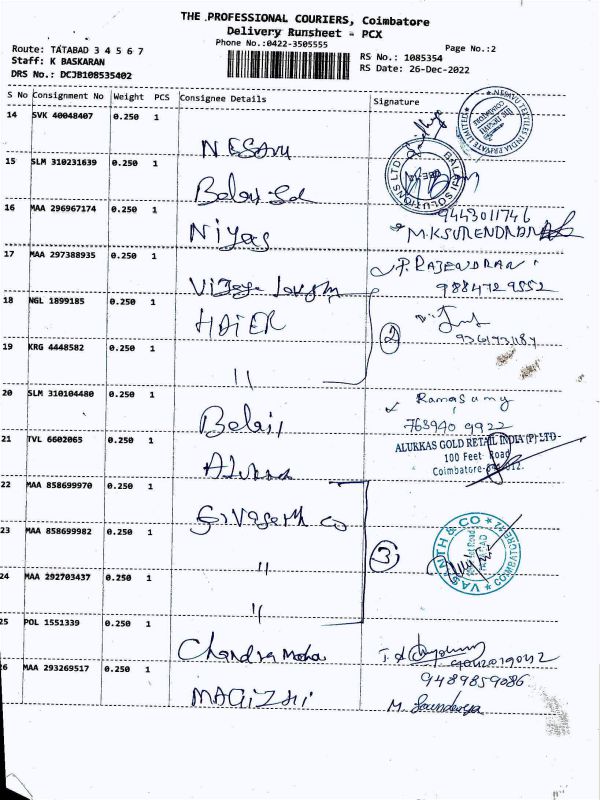 THE PROFESSIONAL COURIERS, Coimbatore
Delivery Runsheet - PCX
Phone No.:0422-3505555
Page No.:2
Route: TATABAD 3 4 5 6 7
Staff: K BASKARAN
RS No.: 1085354
DRS No.: DCJB108535402
RS Date: 26-Dec-2022
S No Consignment No Weight PCS Consignee Details Signature
14 SVK 40048407 0.250 1
NESAVU
NESAVU TEXTILES INDIA PRIVATE LIMITED
15 SLM 310231639 0.250 1
BALAJI SOLUTIONS LTD
16 MAA 296967174 0.250 1
Niyas
9443011746
M.K SURENDRAN
17 MAA 297388935 0.250 1
P. RAJENDRAN
9884729552
18 NGL 1899185 0.250 1
HAIER
2
19 KRG 4448582 0.250 1
"
20 SLM 310104480 0.250 1
Balaji
Ramasamy
763940 9922
21 TVL 6602065 0.250 1
ALUKKAS GOLD RETAIL INDIA (P) LTD
100 Feet Road
Coimbatore-641012.
22 MAA 858699970 0.250 1
23 MAA 858699982 0.250 1
"
3
VASANTH & CO COIMBATORE-12
24 MAA 292703437 0.250 1
"
25 POL 1551339 0.250 1
Chandra Moha
26 MAA 293269517 0.250 1
9489859086
MAGIZHI
M. Soundarya